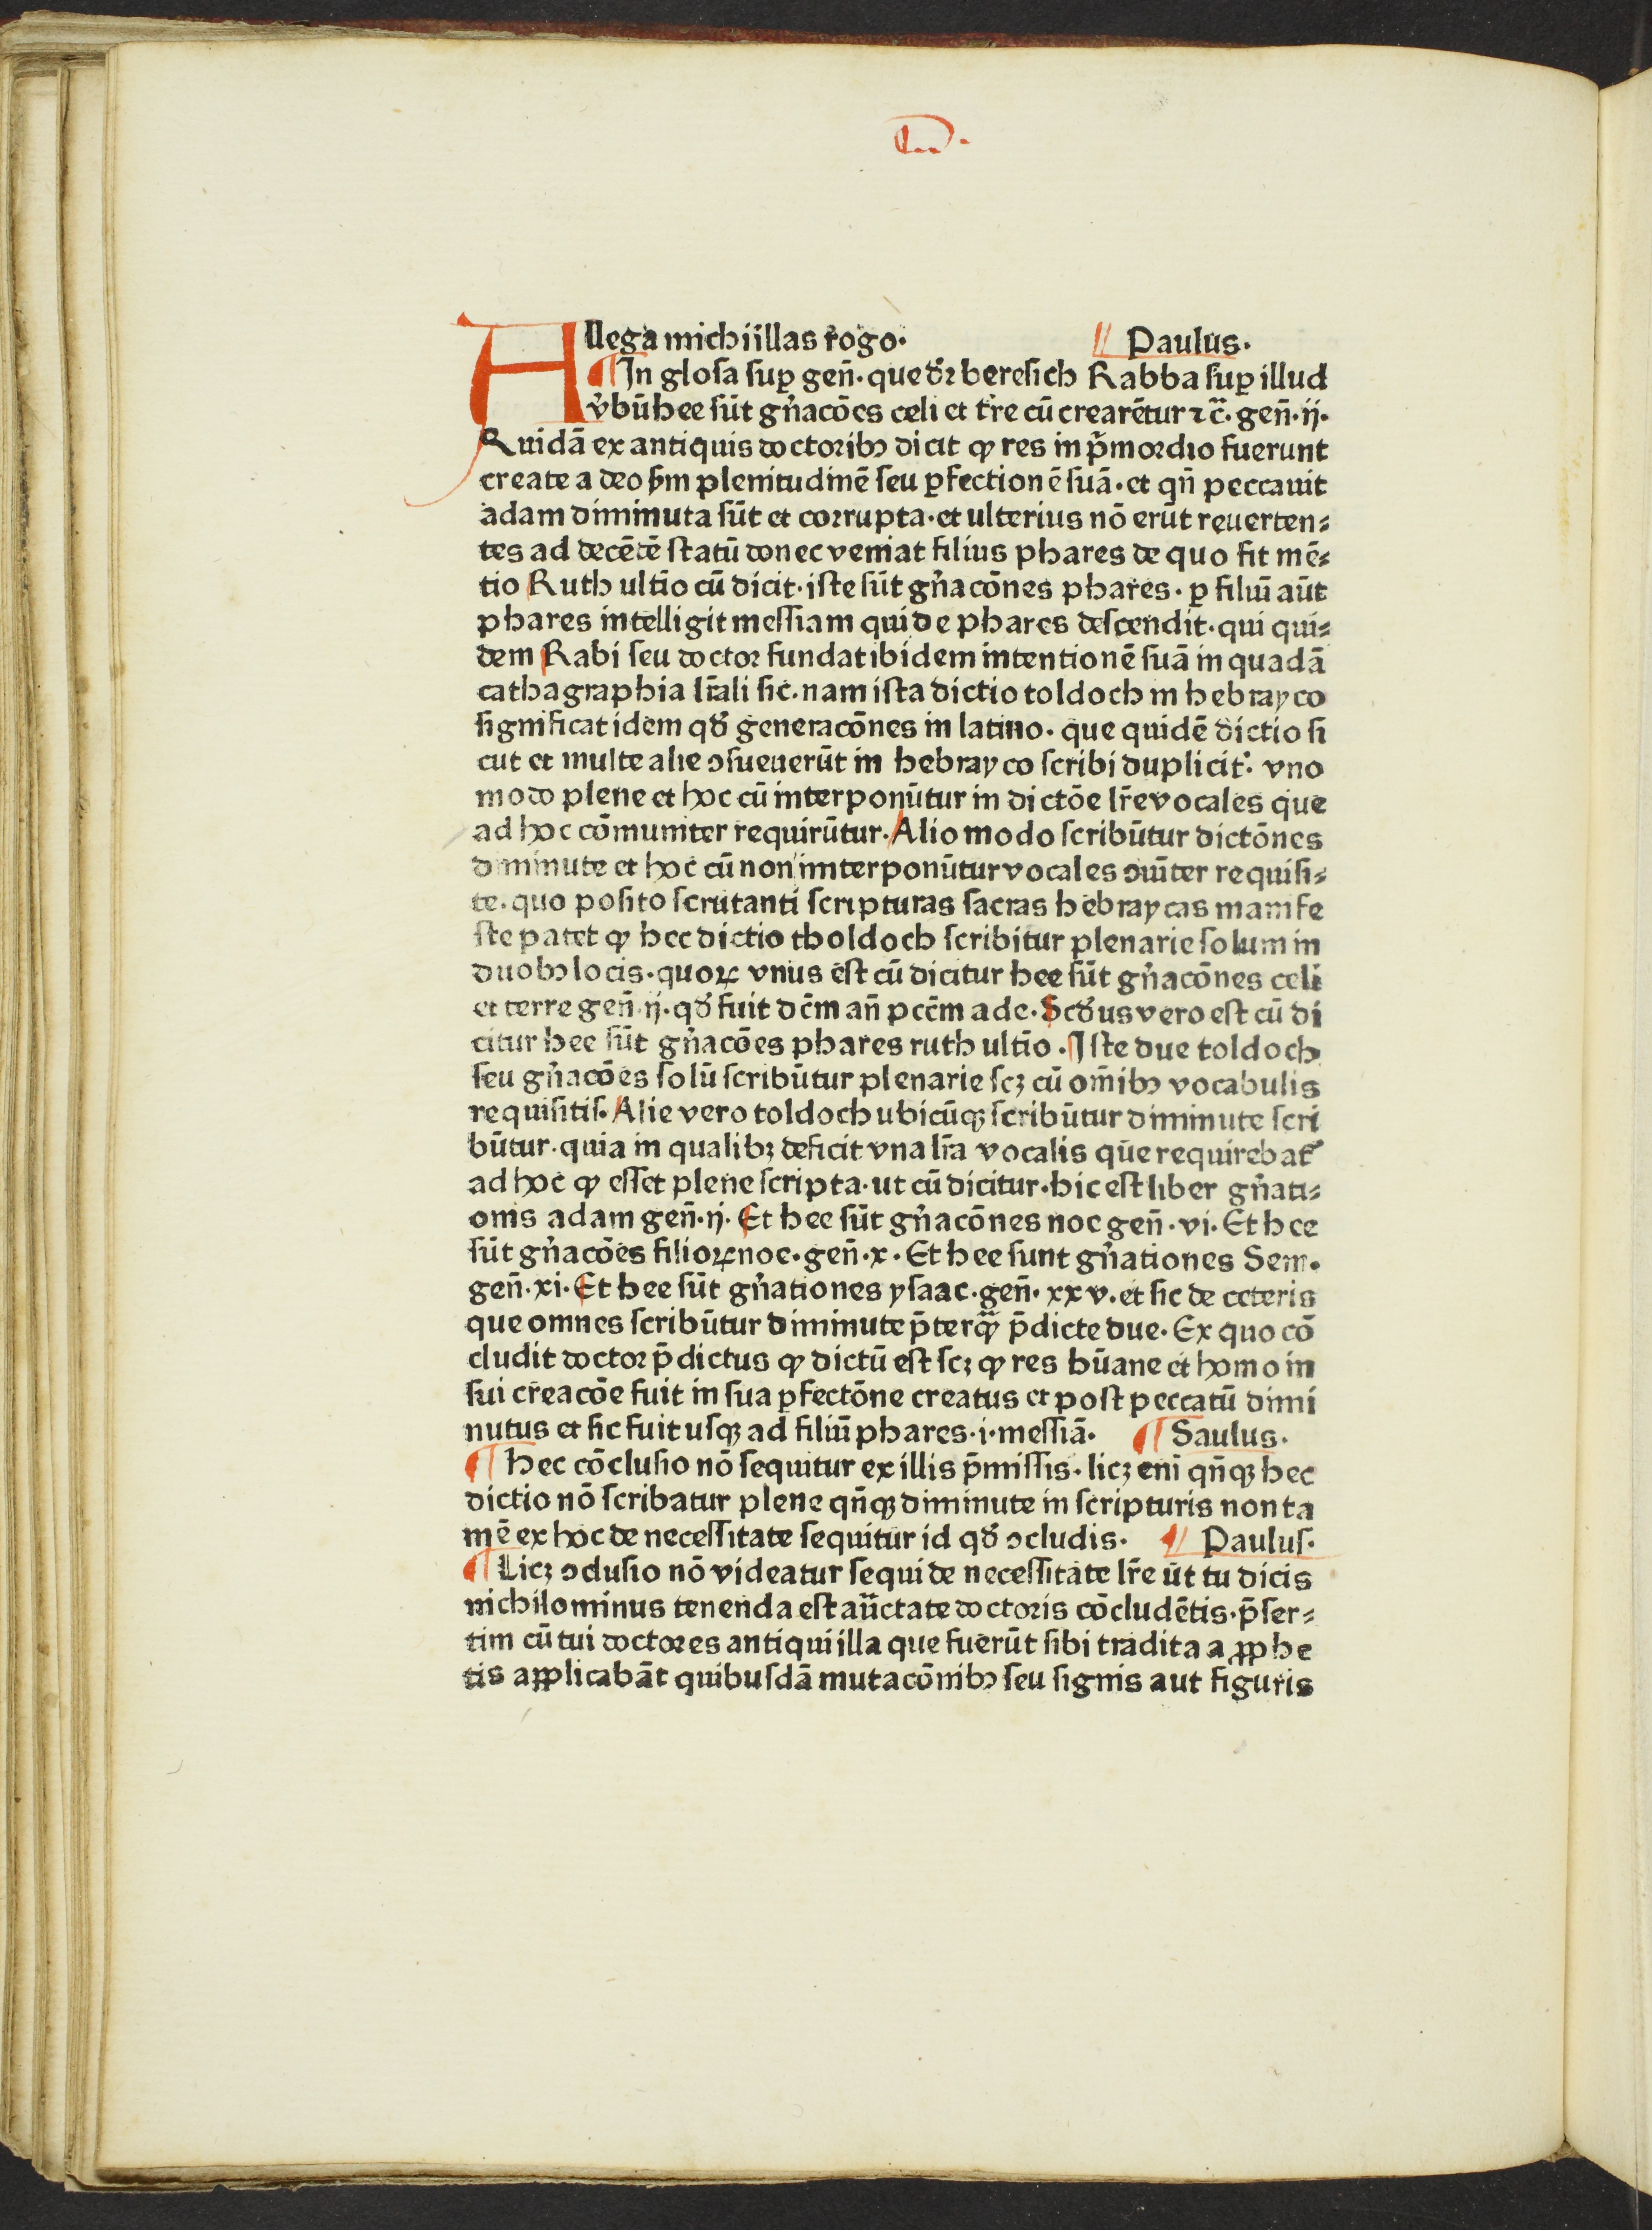 Allega michi illas rogo. ¶ Paulus.
¶ In glosa suꝑ geñ. que dr̄ beresich Rabba suꝑ illud
v̉bū hee sūt gn̉acōes celi et tr̄e cū crearētur ⁊c̄. geñ. ij.
Quidā ex antiquis doctoribꝫ dicit ꝙ res in p̄mordio fuerunt
create a deo ẜm plenitudinē seu ꝑfectionē suā. et qñ peccauit
adam diminuta sūt et corrupta. et ulterius nō erūt reuerten⸗
tes ad decētē statū donec veniat filius phares de quo fit mē⸗
tio Ruth ultīo cū dicit. iste sūt gn̉acōnes phares. ꝑ filiū aūt
phares intelligit messiam qui de phares descendit. qui qui⸗
dem Rabi seu doctor fundat ibidem intentionē suā in quadā
cathagraphia lr̄ali sic. nam ista dictio toldoch in hebrayco
significat idem qđ generacōnes in latino. que quidē dictio si
cut et multe alie ↄsueuerūt in hebrayco scribi duplicit̉. vno
modo plene et hoc cū interponūtur in dictōe lr̄e vocales que
ad hoc cōmuniter requirūtur. Alio modo scribūtur dictōnes
diminute et hoc cū non interponūtur vocales ↄmūiter requisi⸗
te. quo posito scrutanti scripturas sacras hebraycas manife
ste patet ꝙ hec dictio tholdoch scribitur plenarie solum in
duobꝫ locis. quoꝝ vnus est cū dicitur hee sūt gn̉acōnes celi
et terre geñ. ij. qđ fuit dc̄m añ pcc̄m ade. Scđus vero est cū di
citur hee sūt gn̉acōes phares ruth ultīo. Iste due toldoch
seu gn̉acōes solū scribūtur plenarie scꝫ cū om̄ibꝫ vocabulis
requisitis. Alie vero toldoch ubicūqꝫ scribūtur diminute scri
būtur. quia in qualibꝫ deficit vna lr̄a vocalis que requirebat̉
ad hoc ꝙ esset plene scripta. ut cū dicitur. hic est liber gn̉ati⸗
onis adam geñ. ij. Et hee sūt gn̉acōnes noe geñ. vi. Et hee
sūt gn̉acōes filioꝝ noe. geñ. x. Et hee sunt gn̉ationes Sem.
geñ. xi. Et hee sūt gn̉ationes ysaac. geñ. xxv. et sic de ceteris
que omnes scribūtur diminute p̄terqꝫ̄ p̄dicte due. Ex quo cō
cludit doctor p̄dictus ꝙ dictū est scꝫ ꝙ res hūane et homo in
sui creacōe fuit in sua ꝑfectōne creatus et post peccatū dimi
nutus et sic fuit usqꝫ ad filiū phares. i. messiā. ¶ Saulus.
¶ hec cōclusio nō sequitur ex illis p̄missis. licꝫ eni qñqꝫ hec
dictio nō scribatur plene qñqꝫ diminute in scripturis non ta
mē ex hoc de necessitate sequitur id qđ ↄcludis. ¶ Paulus.
¶ Licꝫ ↄclusio nō videatur sequi de necessitate lr̄e ut tu dicis
nichilominus tenenda est aūctate doctoris cōcludētis. p̄ser⸗
tim cū tui doctores antiqui illa que fuerūt sibi tradita a ꝓphe
tis applicabāt quibusdā mutacōnibꝫ seu signis aut figuris